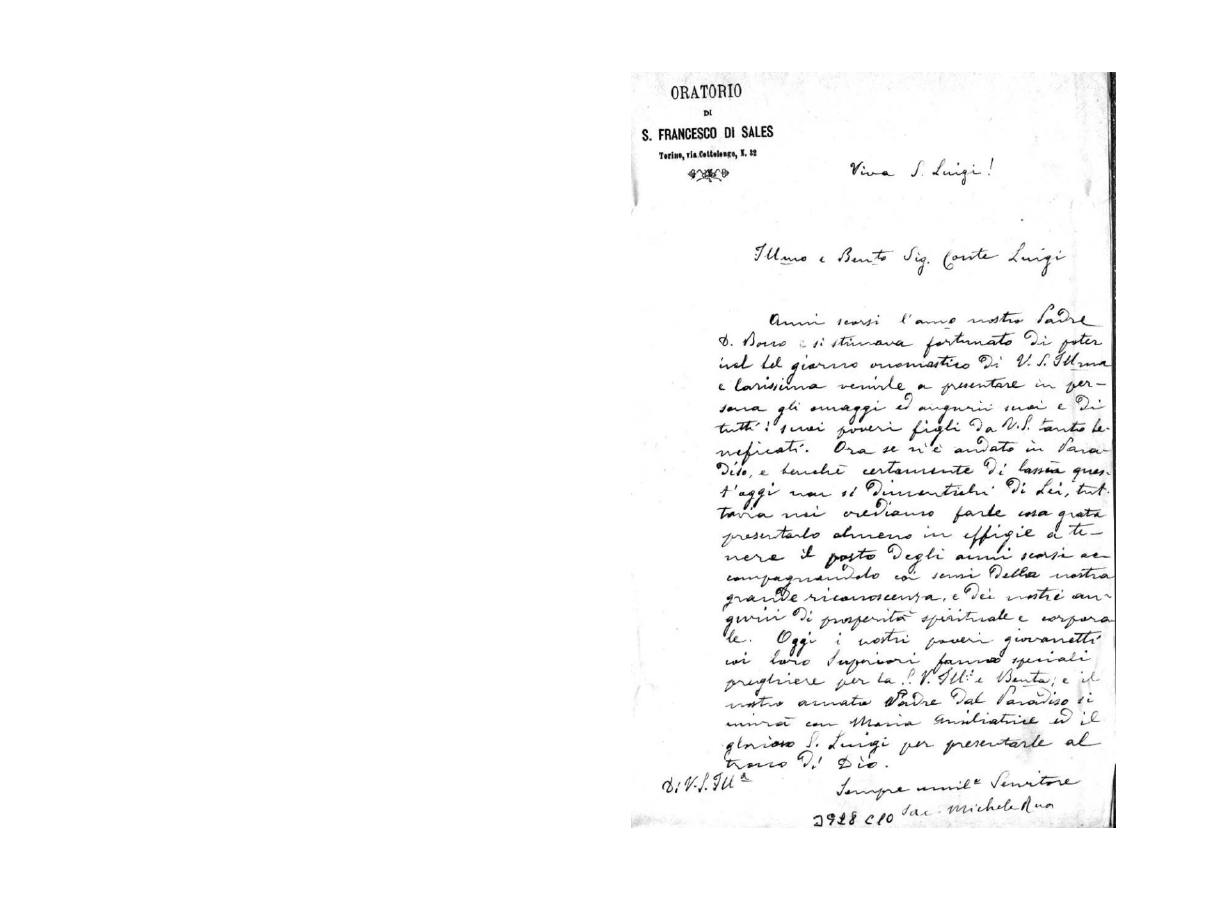 ORATORIO
DI
S. FRANCESCO DI SALES
Torino, via Cottolengo, N. 32
Viva S. Luigi!
Illmo e Bento Sig. Conte Luigi
Anni scorsi l'amo nostro Padre
D. Bosco si stimava fortunato di poter
nel bel giorno onomastico di V. S. Illma
e Carissima venirle a presentare in per-
sona gli omaggi ed augurii suoi e di
tutti i suoi poveri figli da V.S. tanto be-
neficati. Ora se n'è andato in Para-
diso, e benchè certamente di lassù ques-
t'oggi non si dimentichi di Lei, tut-
tavia noi crediamo farle cosa grata
presentarlo almeno in effigie a te-
nere il posto degli anni scorsi ac-
compagnandolo coi sensi della nostra
grande riconoscenza, e dei nostri au-
gurii di prosperità spirituale e corpora
le. Oggi i nostri poveri giovanetti
coi loro Superiori fanno speciali
preghiere per la S. V. Ill.a e Benta; e il
nostro amato Padre dal Paradiso si
unirà con Maria Ausiliatrice ed il
glorioso S. Luigi per presentarle al
trono di Dio.
Di V. S. Ill.a
Sempre umil.e Servitore
Sac. Michele Rua
2928 C10